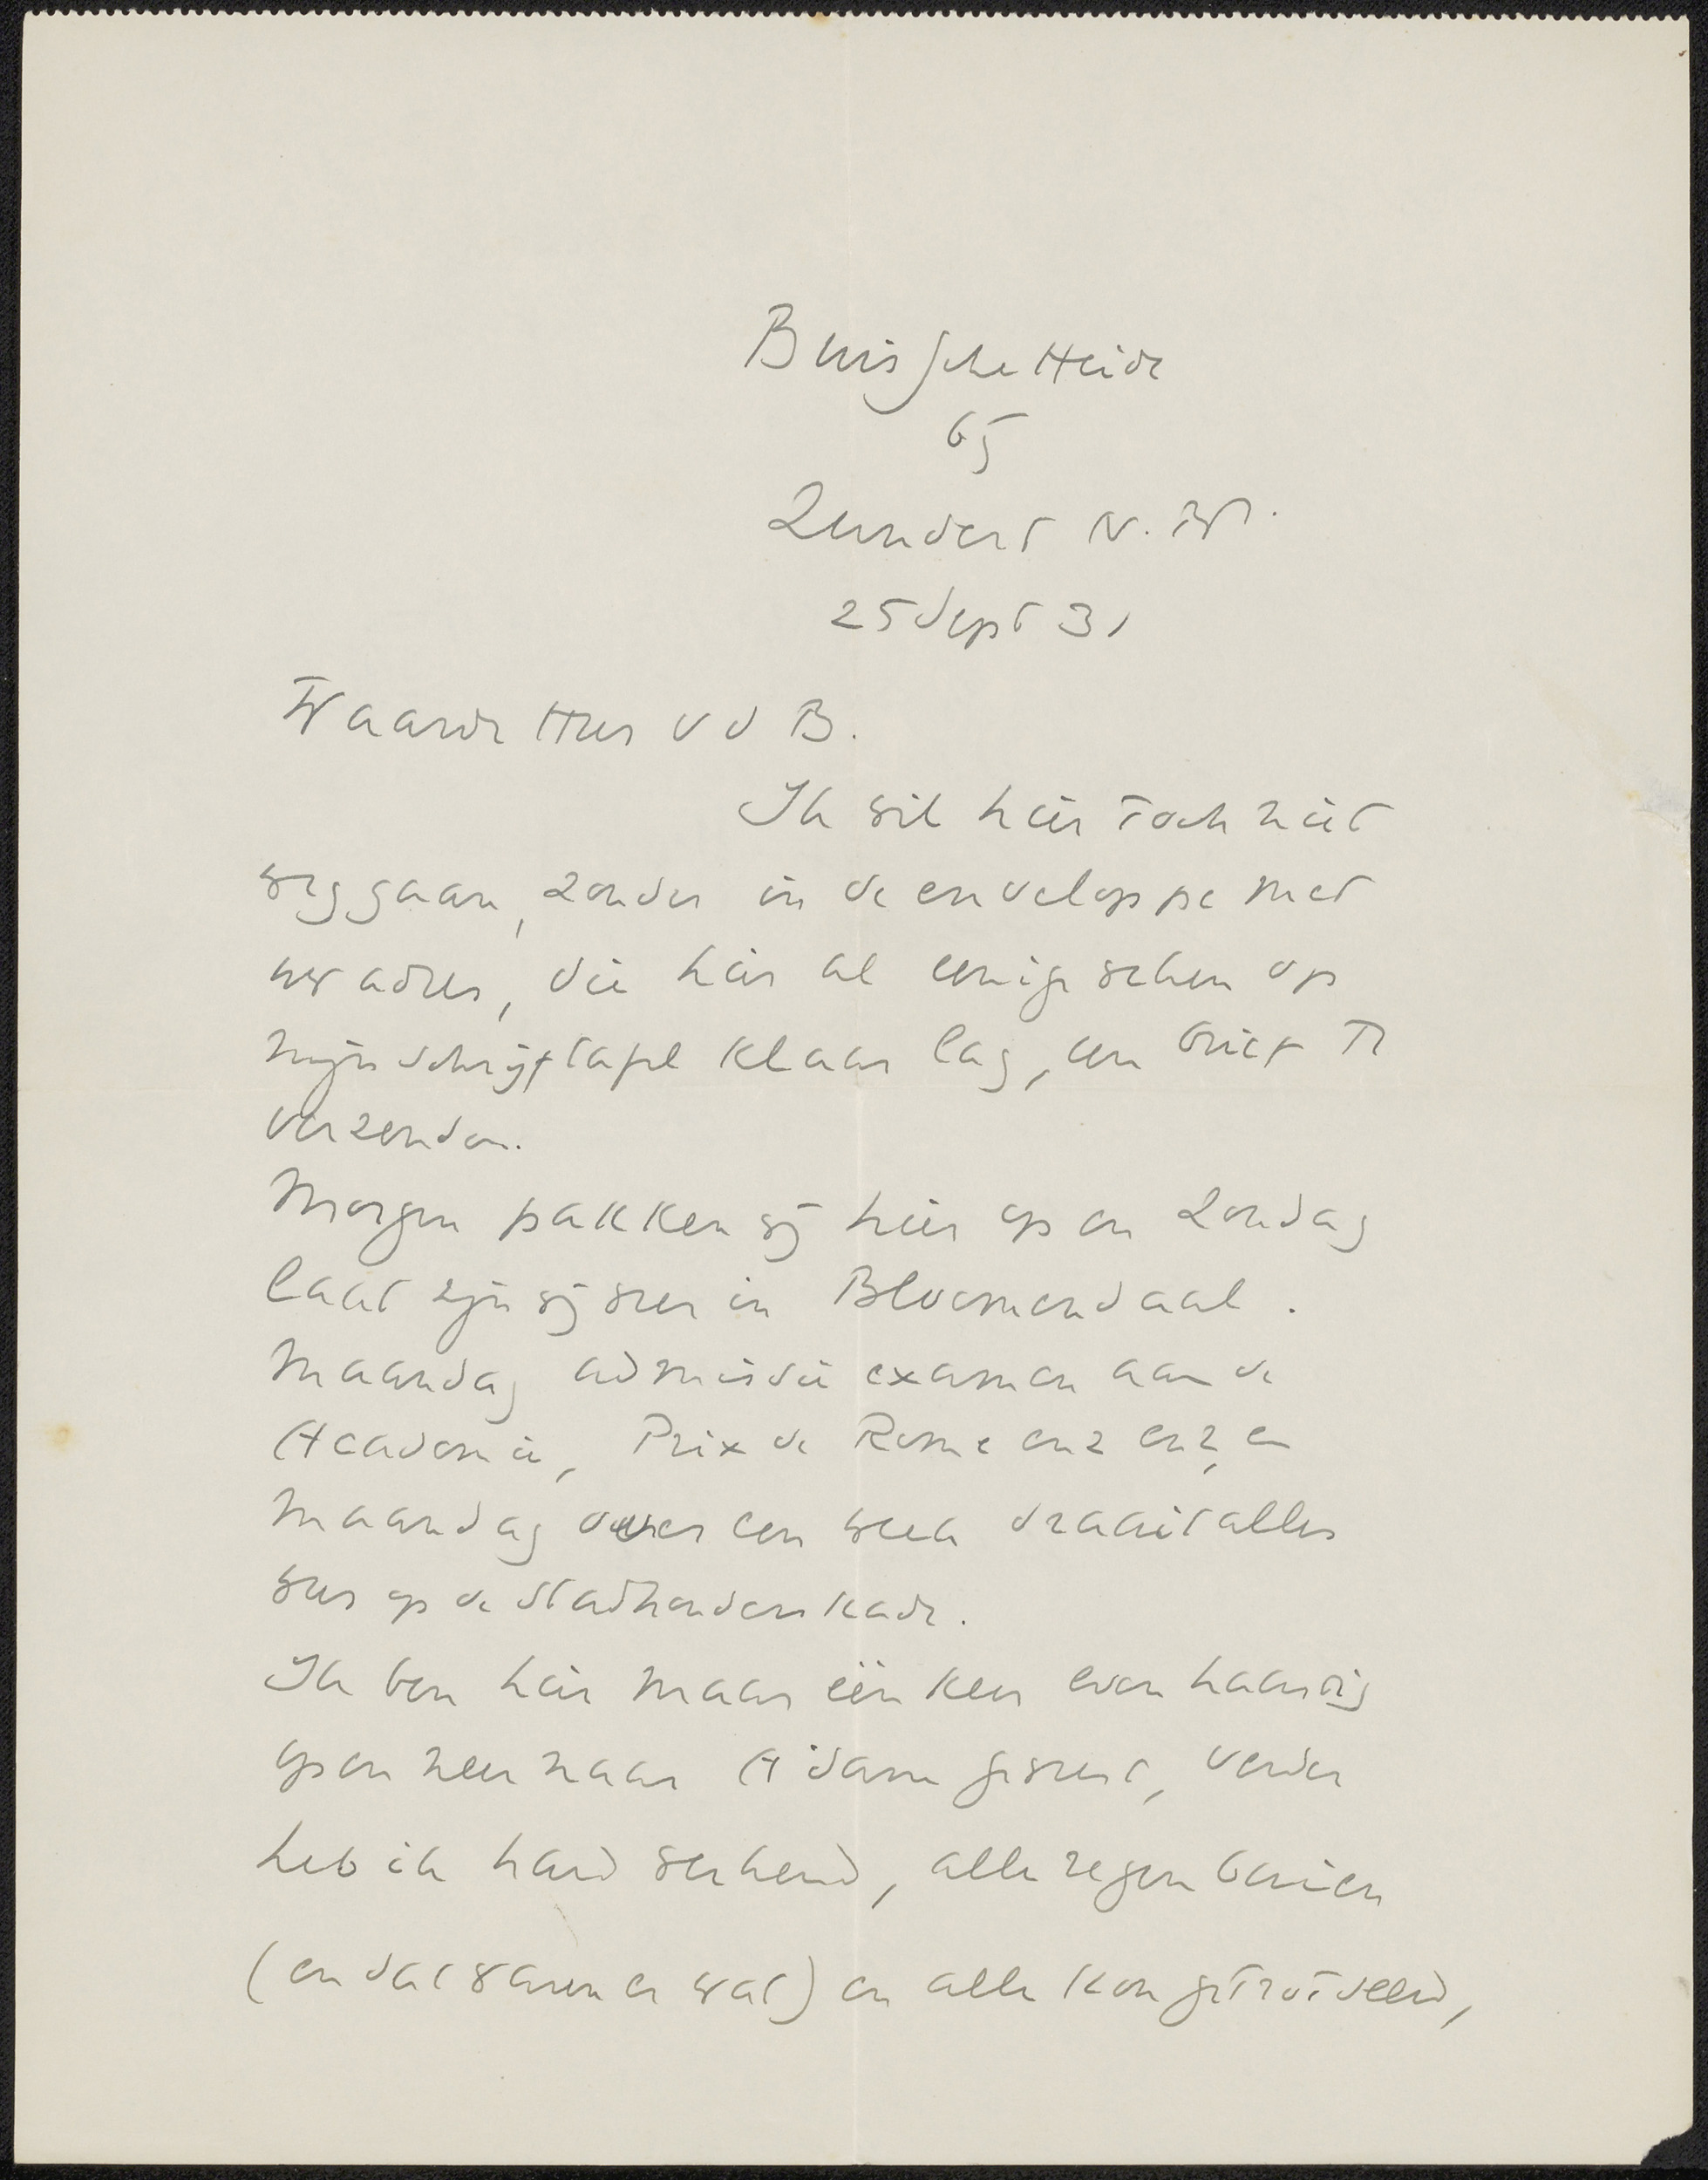 Buissche Heide
65
Zundert N. Br.
25 Sept 31
Waarde Heer v d B.
Ik wil hier toch niet
weggaan, zonder in de enveloppe met
uw adres, die hier al eenige weken op
mijn schrijftafel klaar lag, een brief te
verzenden.
Morgen pakken wij hier op en Zondag
laat zijn wij weer in Bloemendaal.
Maandag admissie examen aan de
Academie, Prix de Rome enz enz, en
Maandag over een week draait alles
weer op de Stadhouderskade.
Ik ben hier maar één keer even haastig
op en neer naar A'dam geweest, verder
heb ik hard gewerkt, alle regenbuien
(en dat waren er wat) en alle kou getrotseerd,